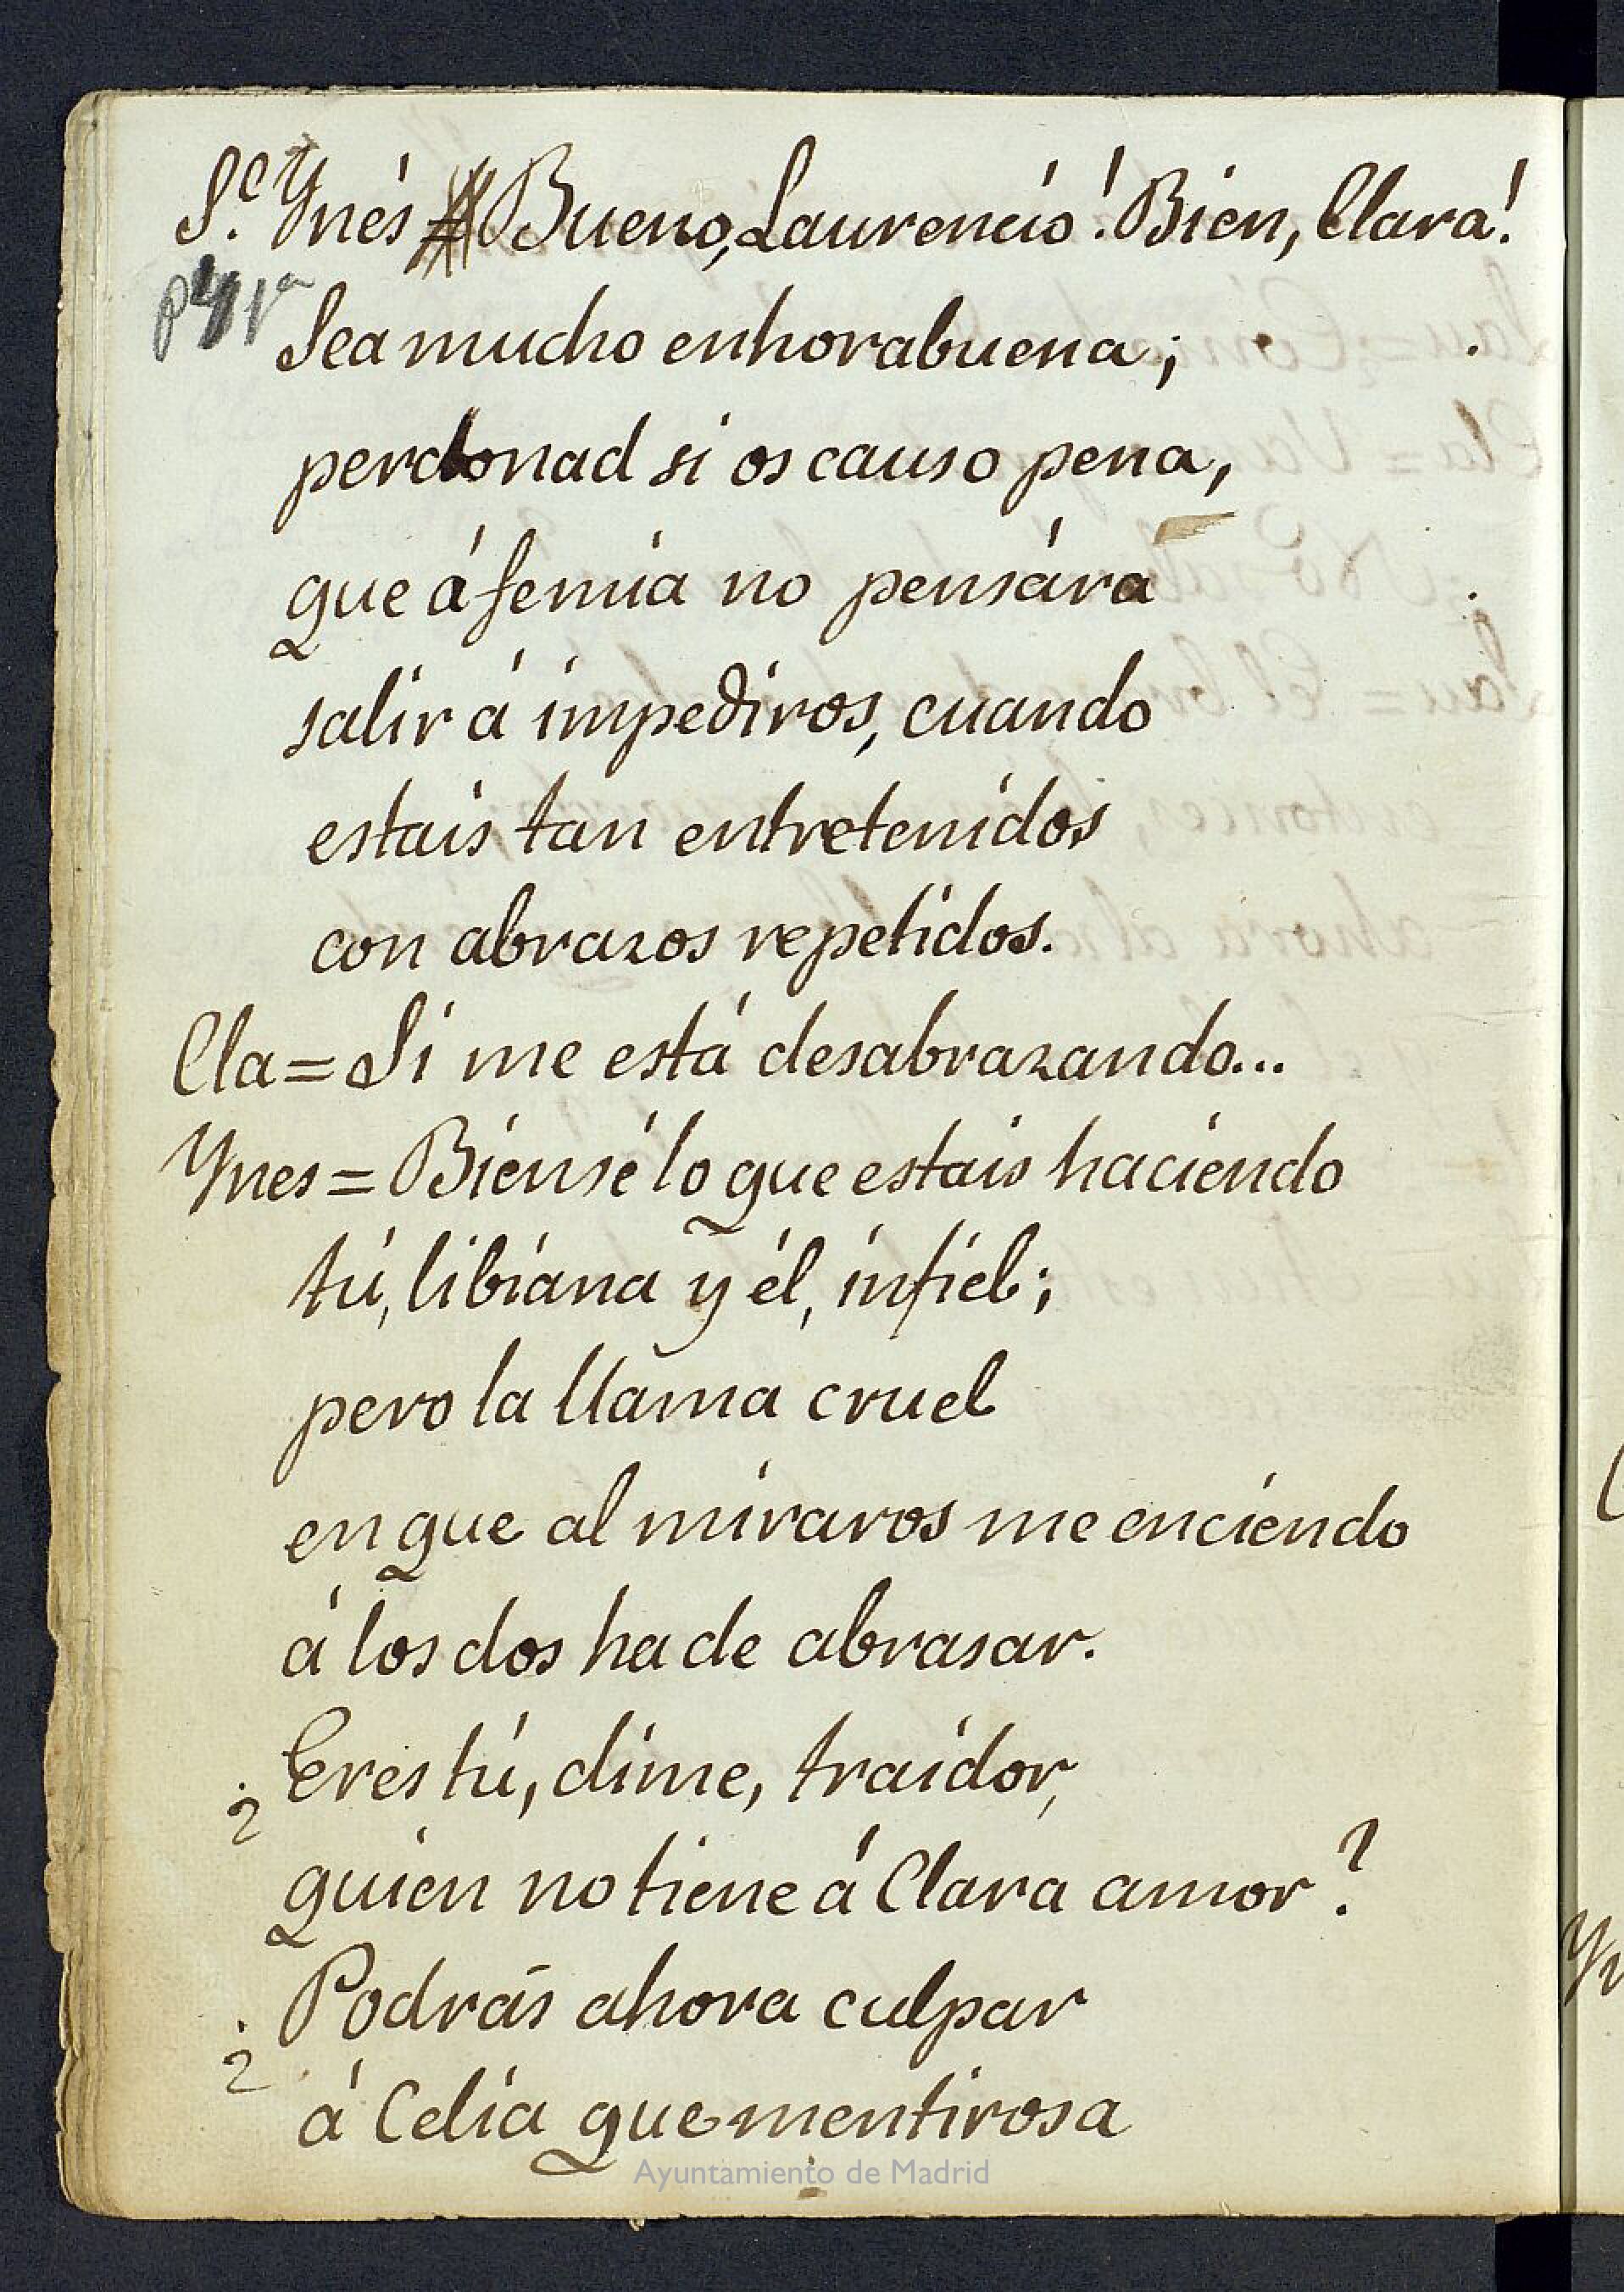 S.e Ynés = Bueno, Laurencio! Bien, Clara!
Sea mucho enhorabuena;
perdonad si os causo pena,
que á femia no pensára
salir á impediros, cuando
estais tan entretenidos
con abrazos repetidos.
Cla = Si me está desabrazando...
Ynes = Bien sé lo que estais haciendo
tú, libiana y él, infiel;
pero la llama cruel
en que al miraros me enciendo
á los dos ha de abrasar.
¿Eres tú, dime, traidor,
quien no tiene á Clara amor?
¿Podrás ahora culpar
á Celia que mentirosa
Ayuntamiento de Madrid